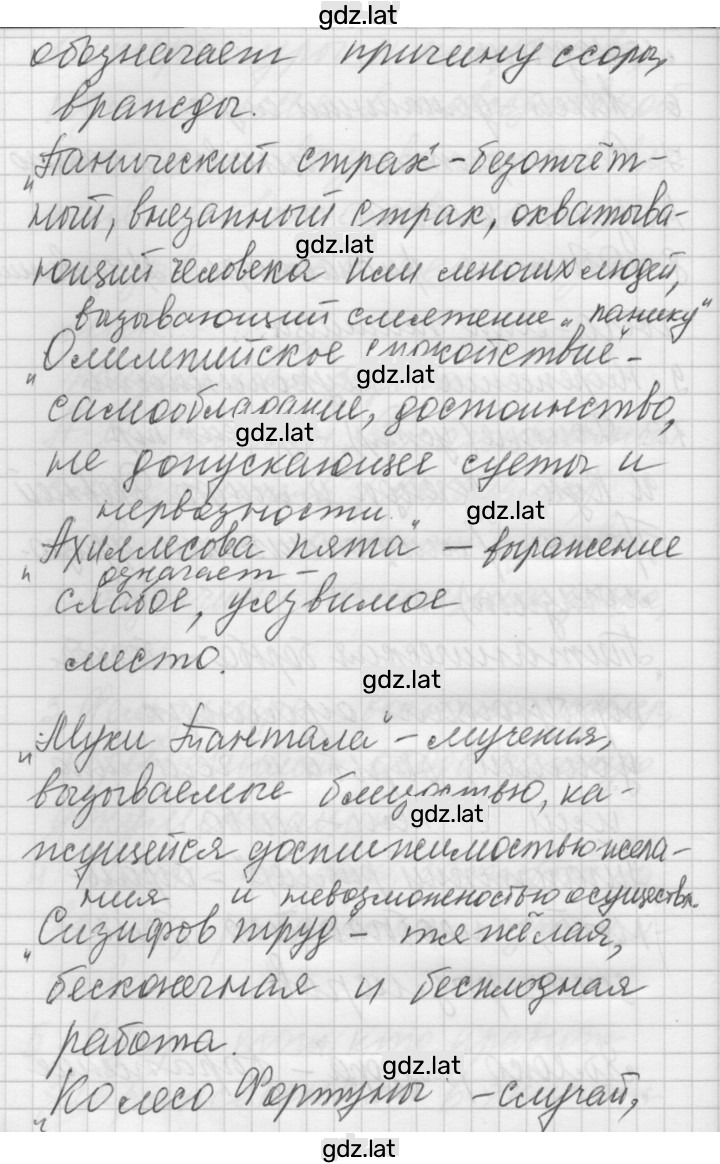 gdz.lat
обозначает причину ссоры,
вражды.
"Панический страх" - безотчёт-
ный, внезапный страх, охватыва-
gdz.lat
ющий человека или многих людей,
вызывающий смятение "панику"
"Олимпийское спокойствие" -
gdz.lat
самообладание, достоинство,
gdz.lat
не допускающее суеты и
нервозности.
gdz.lat
"Ахиллесова пята" - выражение
означает -
слабое, уязвимое
место.
gdz.lat
"Муки Тантала" - мучения,
вызываемые близостью, ка-
gdz.lat
жущейся достижимостью жела-
ния и невозможностью осуществл.
"Сизифов труд" - тяжёлая,
бесконечная и бесплодная
работа.
gdz.lat
"Колесо Фортуны - случай,
gdz.lat